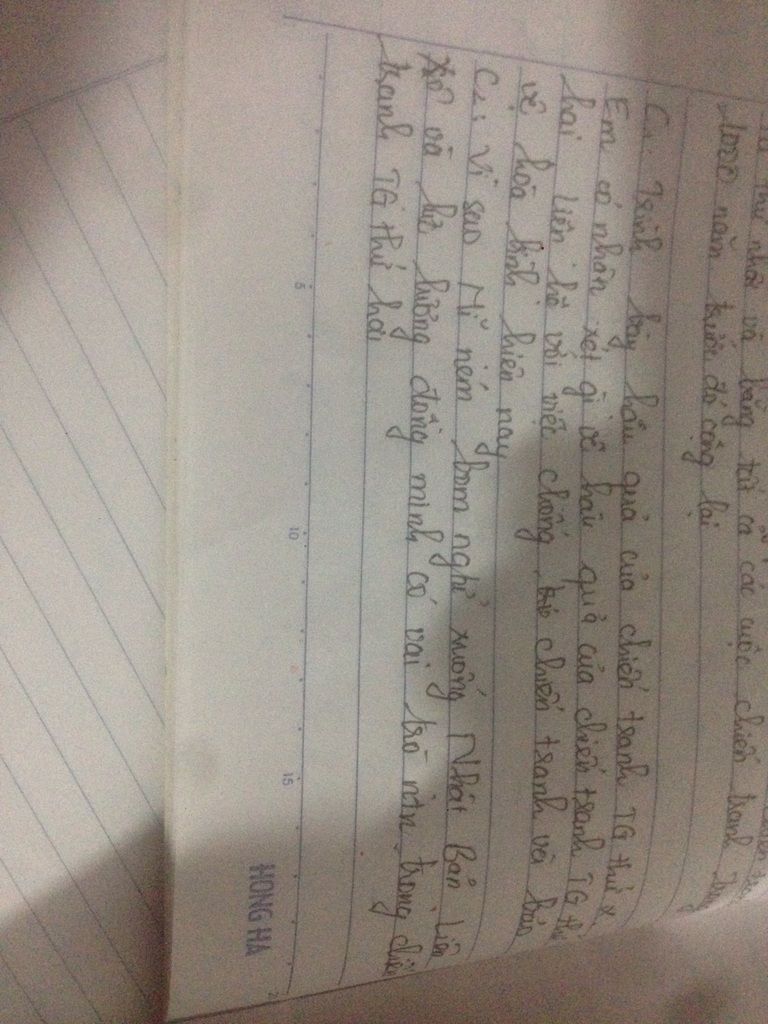 thứ nhất và bằng tất cả các cuộc chiến tranh trong
1000 năm trước đó cộng lại
C1: Trình bày hậu quả của chiến tranh TG thứ 2,
Em có nhận xét gì về hậu quả của chiến tranh TG thứ
hai liên hệ với việc chống chiến tranh và bảo
vệ hòa bình hiện nay
C2: Vì sao Mĩ ném bom nghử xuống Nhật Bản, Liên
Xô và lực lượng đồng minh có vai trò ntn trong chiến
tranh TG thứ hai
5
10
15
HONG HA